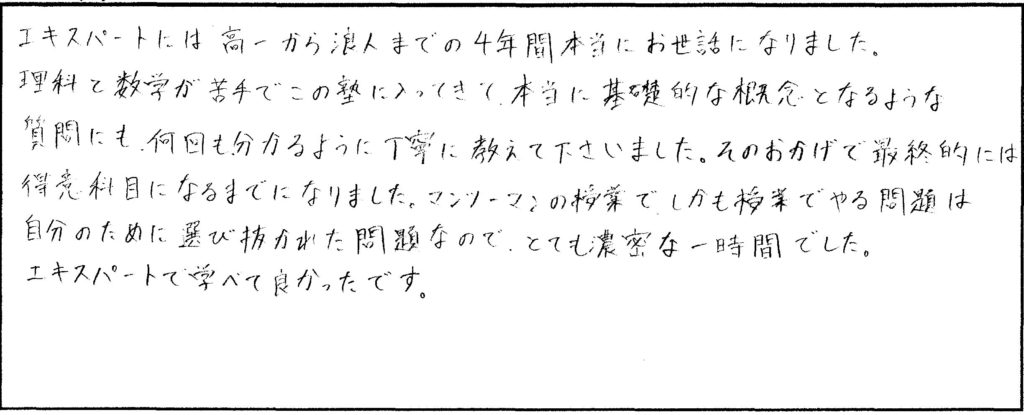 エキスパートには高一から浪人までの4年間本当にお世話になりました。
理科と数学が苦手でこの塾に入ってきて、本当に基礎的な概念となるような
質問にも、何回も分かるように丁寧に教えて下さいました。そのおかげで最終的には
得意科目になるまでになりました。マンツーマンの授業で、しかも授業でやる問題は
自分のために選び抜かれた問題なので、とても濃密な一時間でした。
エキスパートで学べて良かったです。